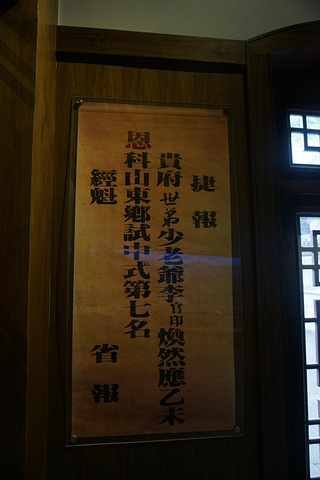 捷報
貴府世弟少老爺李官印煥然應乙未
恩科山東鄉試中式第七名
經魁
省報